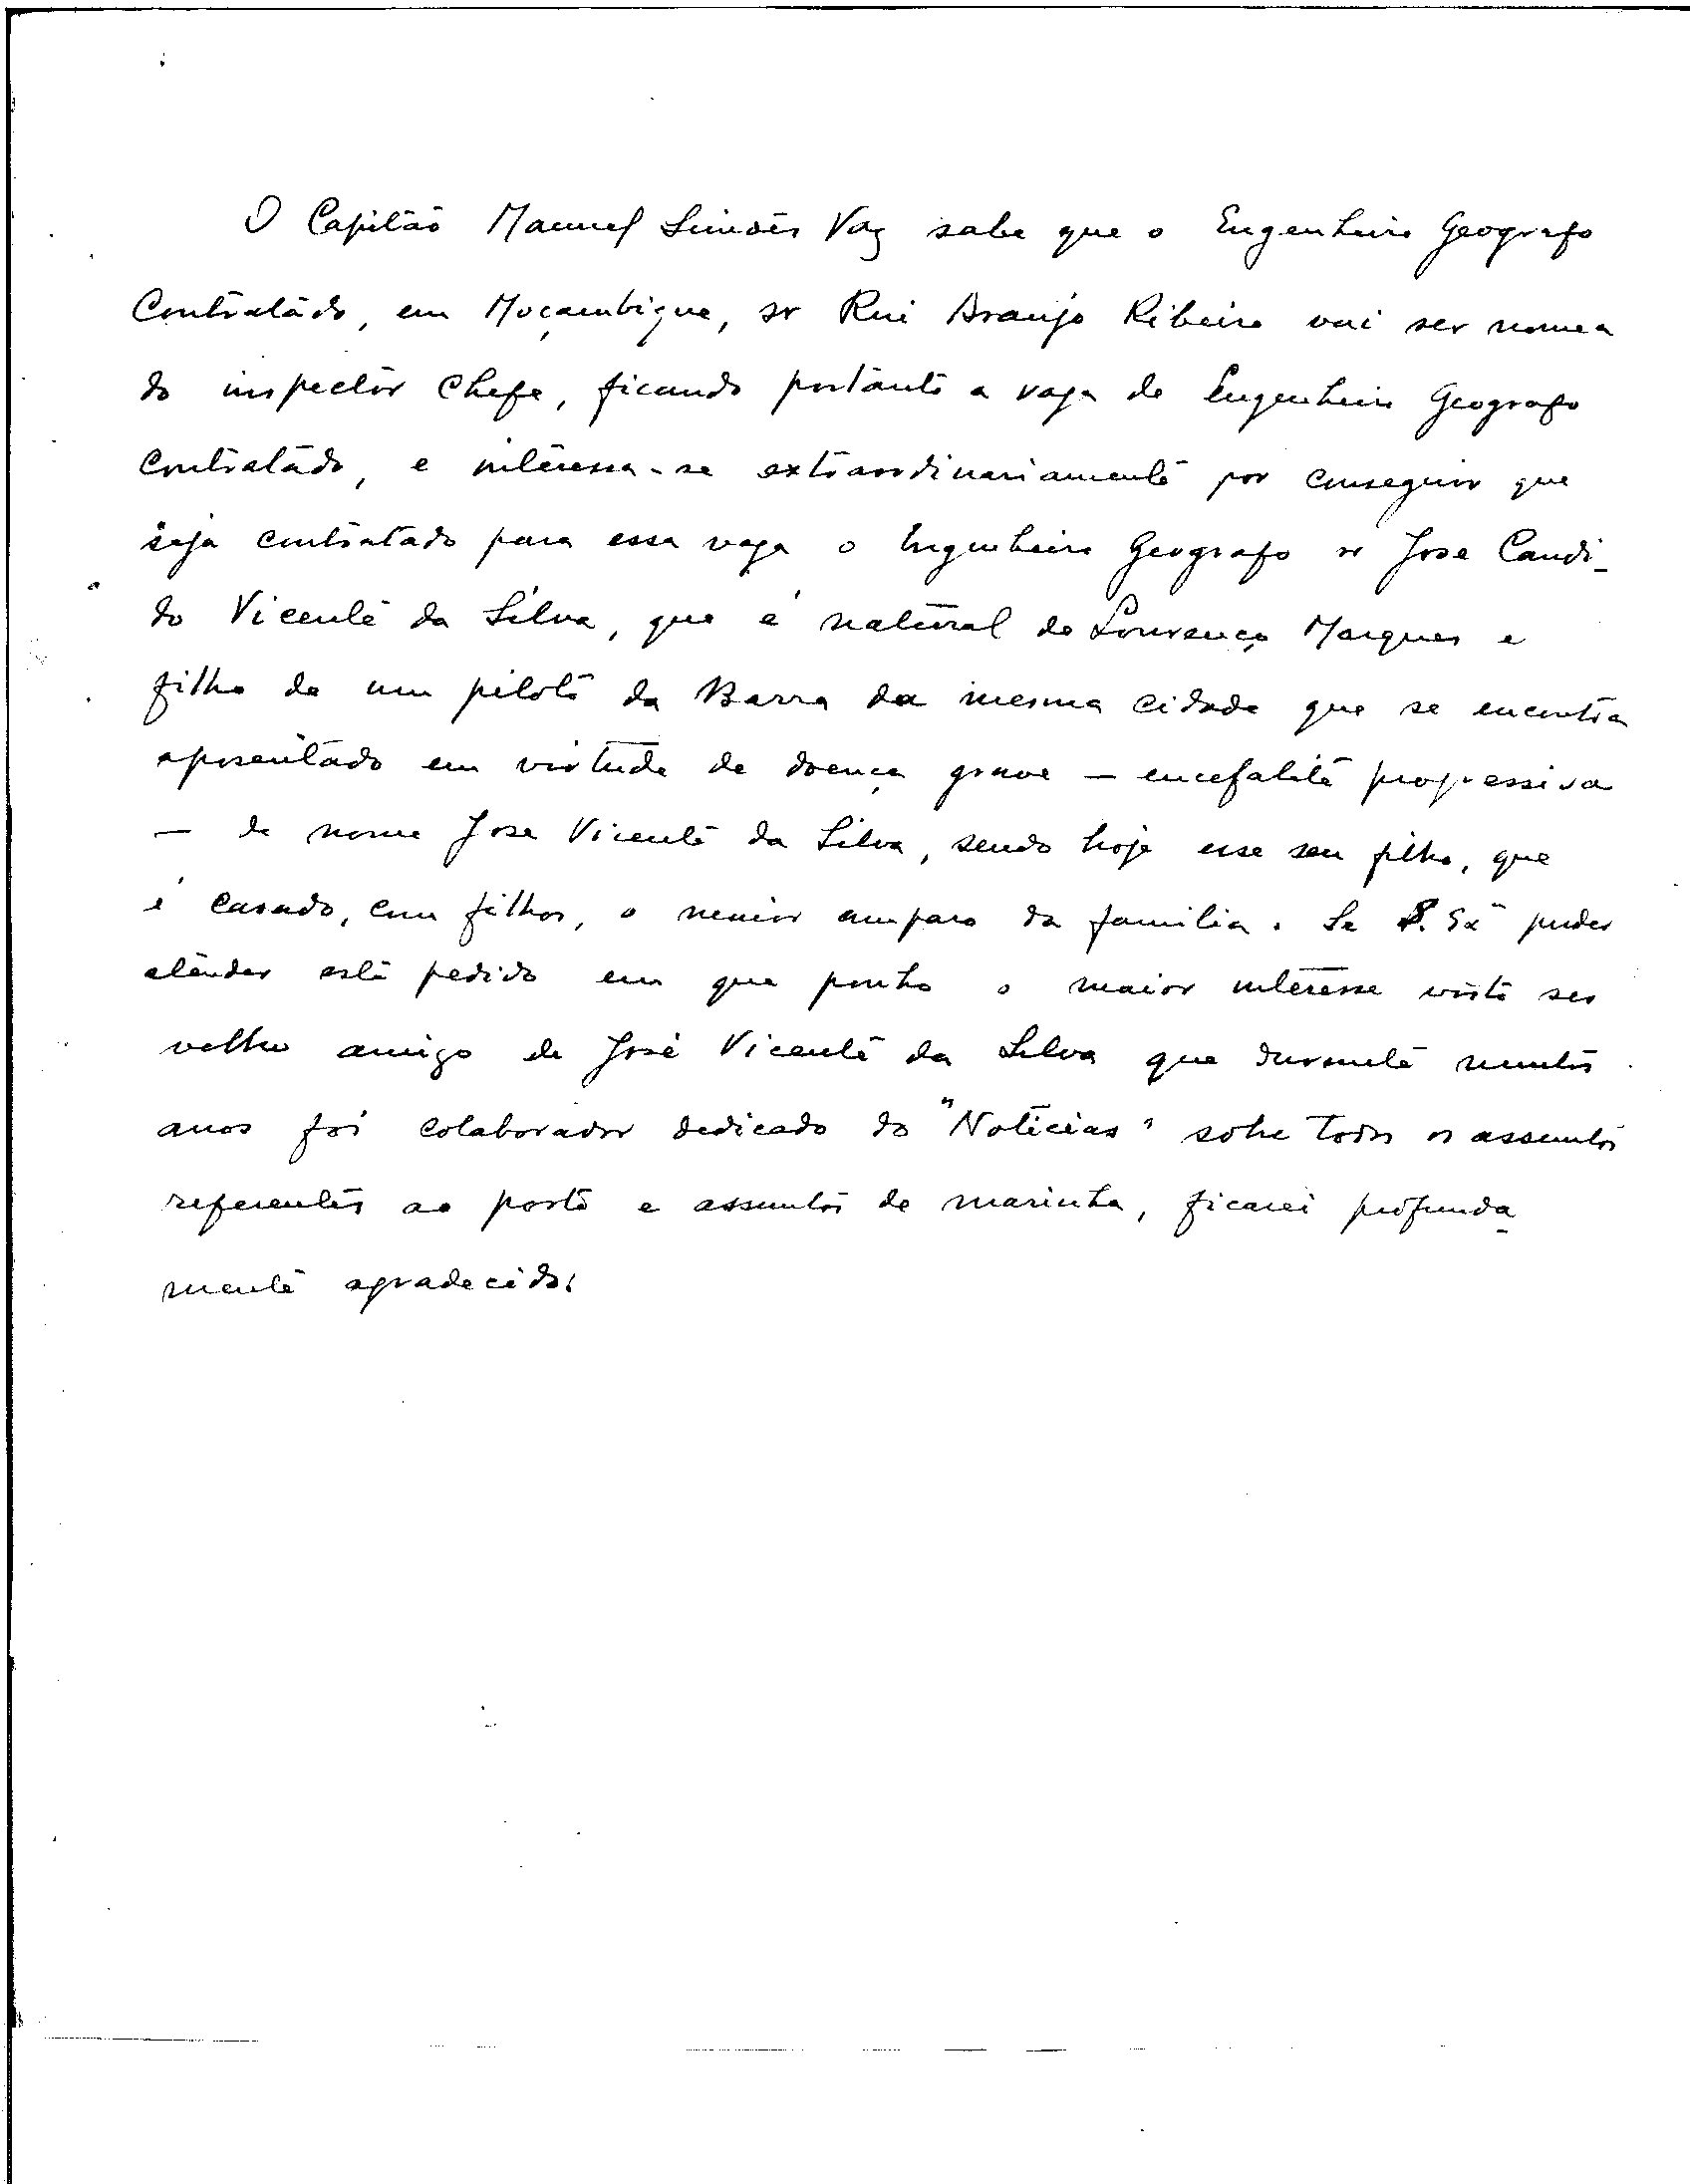 O Capitão Manuel Simões Vaz sabe que o Engenheiro Geografo
Contratado, em Moçambique, sr Rui Araujo Ribeiro vai ser nomea
do inspector Chefe, ficando portanto a vaga de Engenheiro Geografo
Contratado, e interessa-se extraordinariamente por conseguir que
seja contratado para essa vaga o Engenheiro Geografo sr Jose Candi-
do Vicente da Silva, que é natural de Lourenço Marques e
filho de um piloto da Barra da mesma cidade que se encontra
aposentado em virtude de doença grave — encefalite progressiva
— de nome Jose Vicente da Silva, sendo hoje esse seu filho, que
é casado, com filhos, o maior amparo da familia. Se S. Exª puder
atender este pedido em que ponho o maior interesse visto ser
velho amigo de José Vicente da Silva que durante muitos
anos foi colaborador dedicado do "Noticias" sobre todos os assuntos
referentes ao porto e assuntos de marinha, ficarei profunda-
mente agradecido.